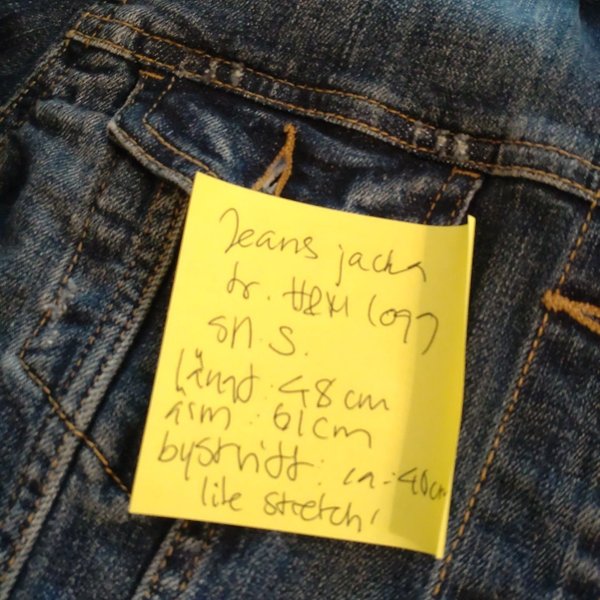 Jeans jacka
fr. H&M (og)
str. S.
längd: 48 cm
ärm: 61 cm
bystvidd: ca: 46cm
lite stretch!